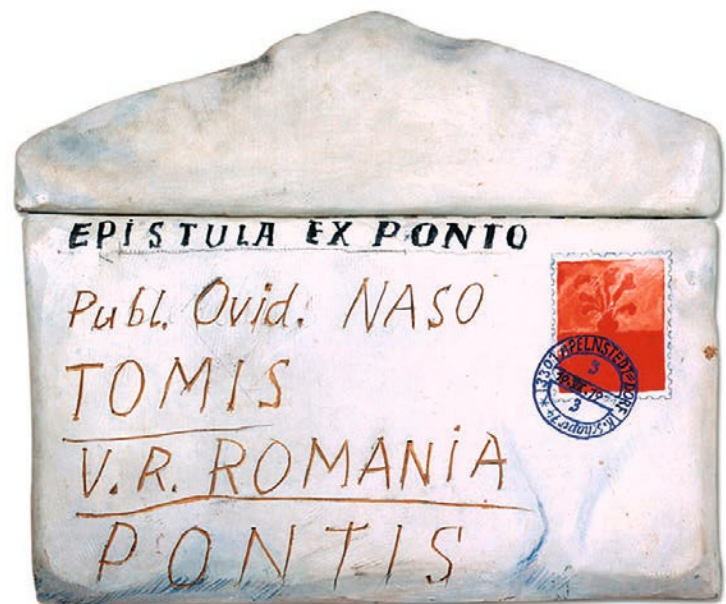 EPISTULA EX PONTO
Publ. Ovid. NASO
TOMIS
V.R. ROMANIA
PONTIS
3301 APELNSTEDT-DORF
3
3